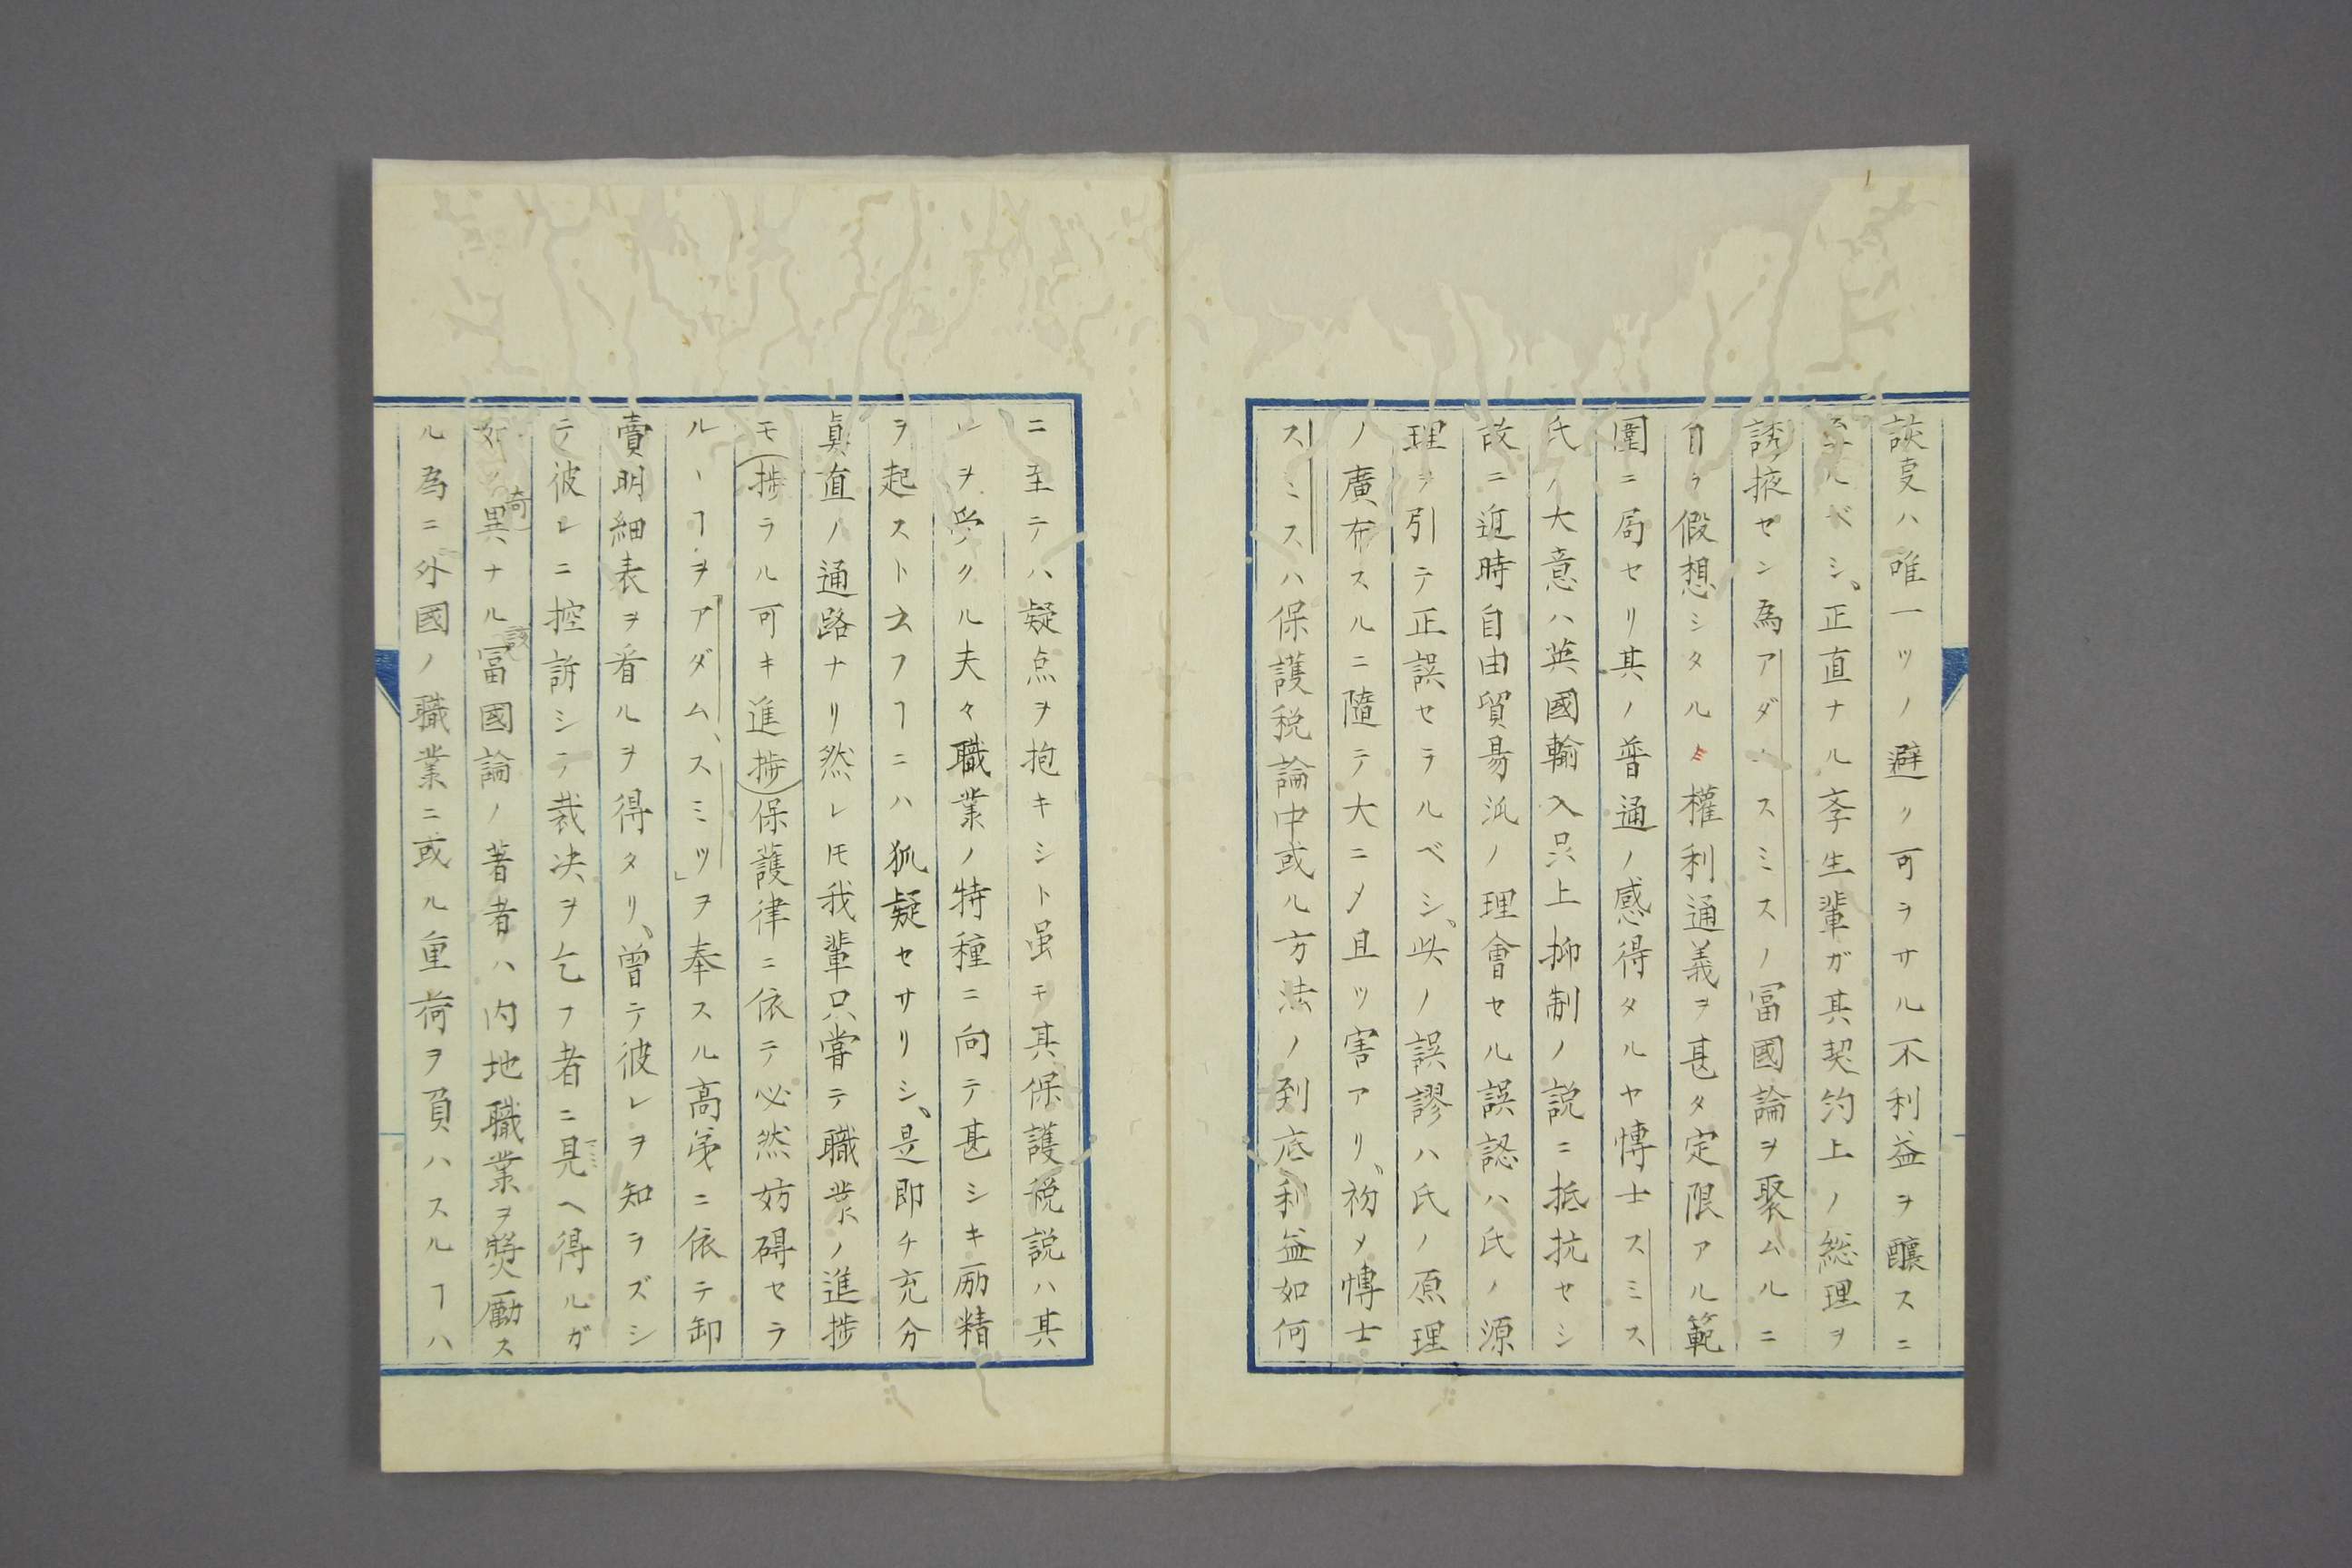 該叓ハ唯一ツノ避ク可ラサル不利益ヲ釀スニ
至ルベシ、正直ナル斈生輩ガ其契約上ノ総理ヲ
誘掖セン為アダムスミスノ冨國論ヲ聚ムルニ
自ラ假想シタル權利通義ヲ甚タ定限アル範
圍ニ局セリ其ノ普通ノ感得タルヤ博士スミス
氏ノ大意ハ英國輸入只上抑制ノ説ニ抵抗セシ
故ニ近時自由貿易派ノ理會セル誤認ハ氏ノ源
理ヲ引テ正誤セラルベシ、此ノ誤謬ハ氏ノ原理
ノ廣布スルニ隨テ大ニメ且ツ害アリ、初メ博士
スミスハ保護税論中或ル方法ノ到底利益如何
ニ至テハ疑点ヲ抱キシト虽モ其保護税説ハ其
レヲ受クル夫々職業ノ特種ニ向テ甚シキ励精
ヲ起スト云フヿニハ狐疑セサリシ、是即チ充分
眞直ノ通路ナリ然レ𪜈我輩只嘗テ職業ノ進捗
モ(捗ラル可キ進捗)保護律ニ依テ必然妨碍セラ
ル丶ヿヲアダム、スミツ」ヲ奉スル高弟ニ依テ卸
賣明細表ヲ看ルヲ得タリ、曽テ彼レヲ知ラズシ
テ彼レニ控訴シテ裁决ヲ乞フ者ニ見ヘ得ルガ
奇異ナル該冨國論ノ著者ハ内地職業ヲ奬勵ス
ル為ニ外國ノ職業ニ或ル重荷ヲ負ハスルヿハ